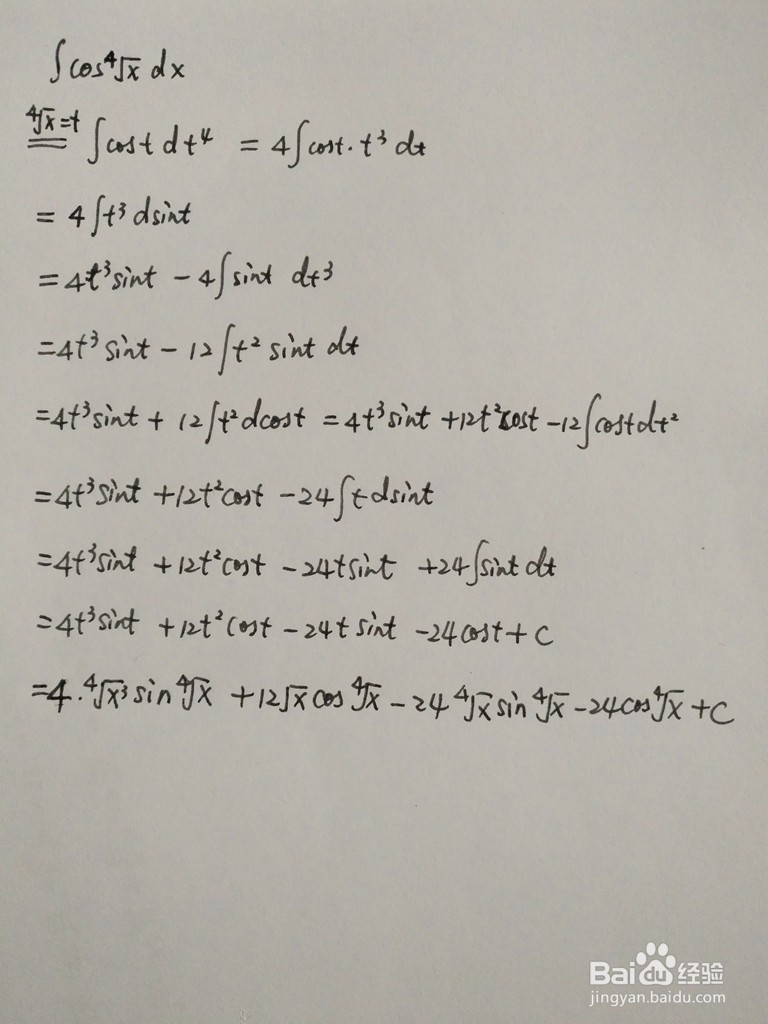 ∫cos⁴√x dx
⁴√x=t ∫cost dt⁴ = 4∫cost·t³ dt
= 4∫t³ dsint
=4t³sint − 4∫sint dt³
=4t³sint − 12∫t² sint dt
=4t³sint + 12∫t²dcost = 4t³sint +12t²cost −12∫costdt²
=4t³sint +12t²cost −24∫tdsint
=4t³sint +12t²cost −24tsint +24∫sint dt
=4t³sint +12t²cost −24t sint −24cost+C
=4·⁴√x³sin⁴√x +12√x cos⁴√x −24⁴√x sin⁴√x −24cos⁴√x +C
Baidu经验
jingyan.baidu.com